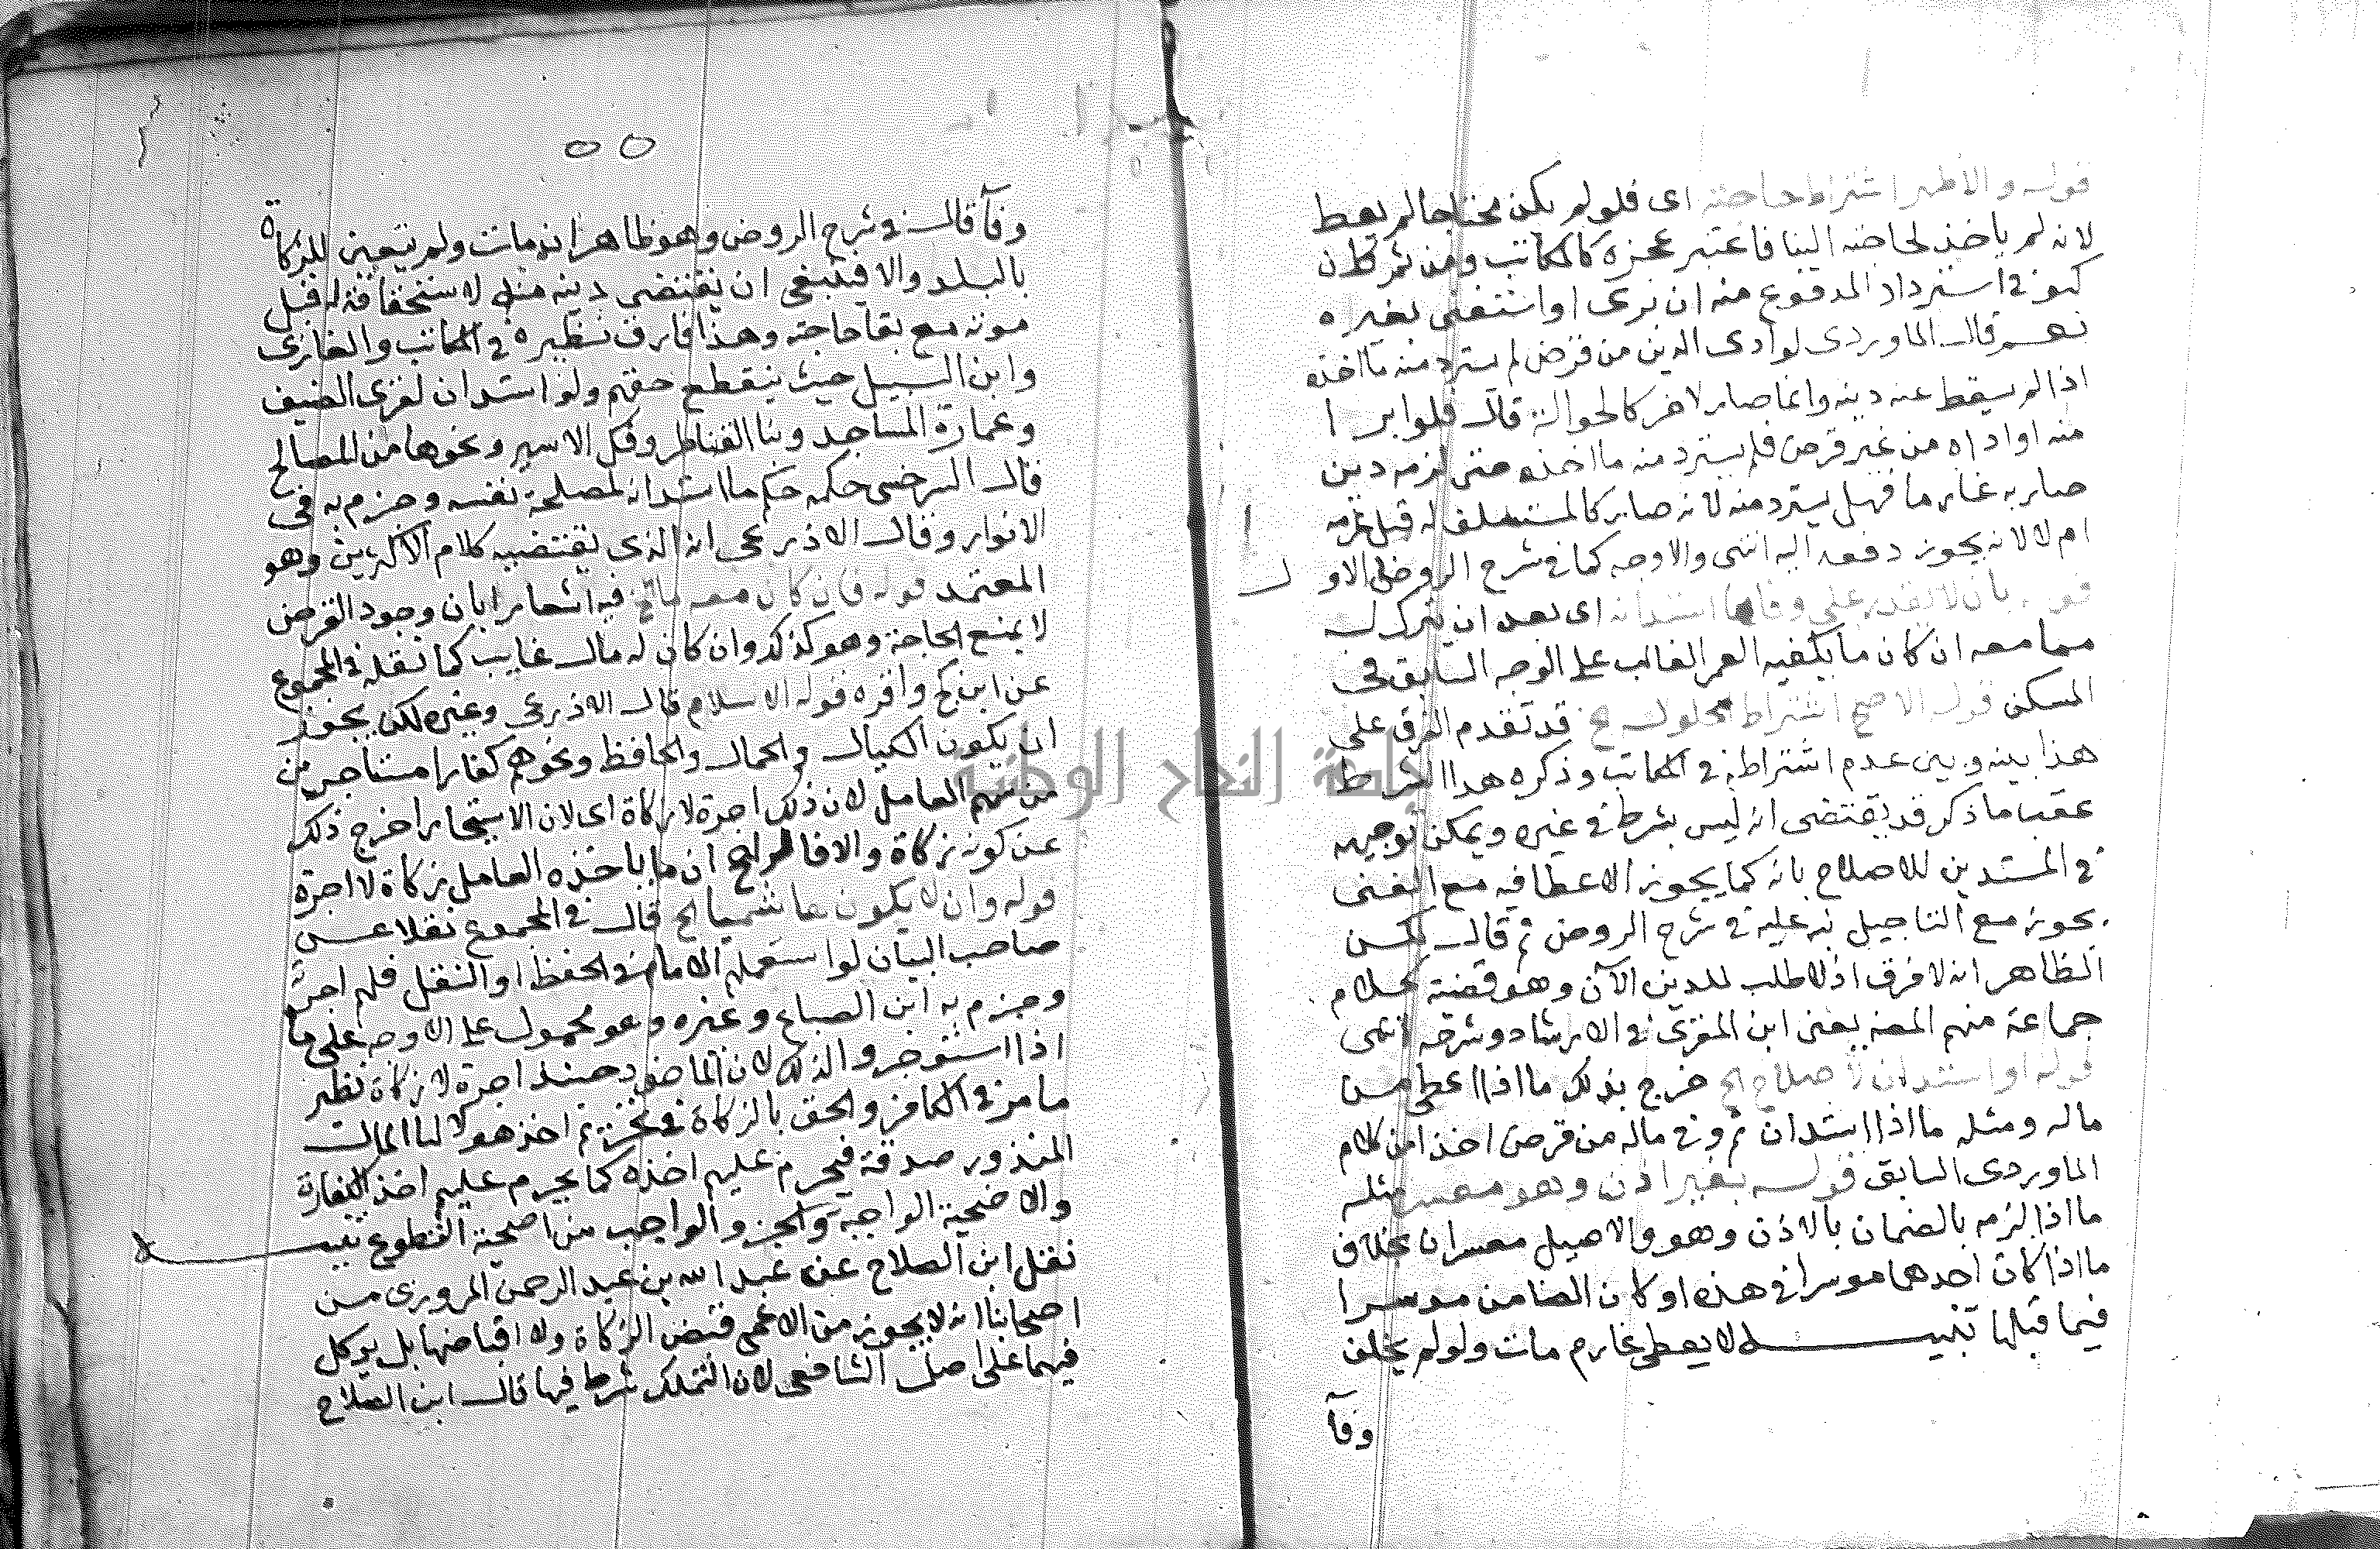 قوله والاظهر اشتراط حاجته اى فلو لم يكن محتاجا لم يعط
لانه لم ياخذ لحاجته الينا فاعتبر عجزه كالمكاتب ومن ثم
في استرداد المدفوع منه ان برى او استغنى بغيره
نعم قال الماوردى لو ادى الدين من قرض لم يسترد منه ما اخذه
اذا لم يسقط عنه دينه وانما صار لاخر كالحوالة قال فلو ابرا
منه او اداه من غير قرض فلم يسترد منه ما اخذه حتى لزمه دين
صار به غارما فهل يسترد منه لانه صار كالمستسلف له قبل غرمه
ام لا لانه يجوز دفعه اليه انتهى والاوجه كما في شرح الروض الاول
قوله بان لا يقدر على وفا ما استدانه اى بعد ان يترك له
مما معه ان كان ما يكفيه العمر الغالب على الوجه السابق في
المسكن قوله الاصح اشتراط الحلول الخ قد تقدم الفرق على
هذا بينه وبين عدم اشتراطه في المكاتب وذكره هذا الشرط
عقب ما ذكر قد يقتضى انه ليس بشرط في غيره ويمكن توجيهه
في المستدين للاصلاح بانه كما يجوز الاعطا فيه مع الغنى
يجوز مع التاجيل نبه عليه في شرح الروض ثم قال لكن
الظاهر انه لا فرق اذ لا طلب للدين الآن وهو قضية كلام
جماعة منهم المصنف يعنى ابن المقرى في الارشاد وشرحه انتهى
قوله او استدان لاصلاح الخ خرج بذلك ما اذا اعطى من
ماله ومثله ما اذا استدان ثم وفى ماله من قرض اخذا من كلام
الماوردى السابق قوله بغير اذن وهو معسر مثله
ما اذا لزمه بالضمان بالاذن وهو والاصيل معسران بخلاف
ما اذا كان احدهما موسرا في هذه او كان الضامن موسرا
فيما قبلها تنبيه لا يعطى غارم مات ولو لم يخلف
وفآ
٥٥
وفآ قال في شرح الروض وهو ظاهر انه مات ولم يتعين للزكاة
بالبلد والا فينبغى ان يقتضى دينه منه لاستحقاقه له قبل
موته مع بقا حاجته وهذا فارق نظيره في المكاتب والغازى
وابن السبيل حيث ينقطع حقهم ولو استدان لقرى الضيف
وعمارة المساجد وبنا القناطر وفك الاسير ونحوها من المصالح
قال السرخسى حكمه حكم ما استدانه لمصلحة نفسه وجزم به في
الانوار وقال الاذرعى انه الذى يقتضيه كلام الاكثرين وهو
المعتمد قوله فان كان معه مال الخ فيه اشعار بان وجود القرض
لا يمنع الحاجة وهو كذلك وان كان له مال غايب كما نقله في المجموع
عن ابن كج واقره قوله الاسلام قال الاذرعى وغيره لكن يجوز
ان يكون الكيال والحمال والحافظ ونحوهم كفارا مستاجرين
من سهم العامل لان ذلك اجرة لا زكاة اى لان الاستيجار اخرج ذلك
عن كونه زكاة والا فالراجح ان ما ياخذه العامل زكاة لا اجرة
قوله وان لا يكون هاشميا الخ قال في المجموع نقلا عن
صاحب البيان لو استعملهم الامام في الحفظ او النقل فلهم اجرته
وجزم به ابن الصباغ وغيره وهو محمول على الاوجه على ما
اذا استوجروا لذلك لان الماخوذ حينئذ اجرة لا زكاة نظير
ما مر في الكافر والحق بالزكاة في تحريم اخذ هولا لها المال
المنذور صدقة فيحرم عليهم اخذه كما يحرم عليهم اخذ الكفارة
والاضحية الواجبة والجزو الواجب من اضحية التطوع تنبيه
نقل ابن الصلاح عن عبد الله بن عبد الرحمن المروزى من
اصحابنا انه لا يجوز من الاعمى قبض الزكاة ولا اقباضها بل يوكل
فيهما على اصل الشافعى لان التملك شرط فيها قال ابن الصلاح
جامعة النجاح الوطنية